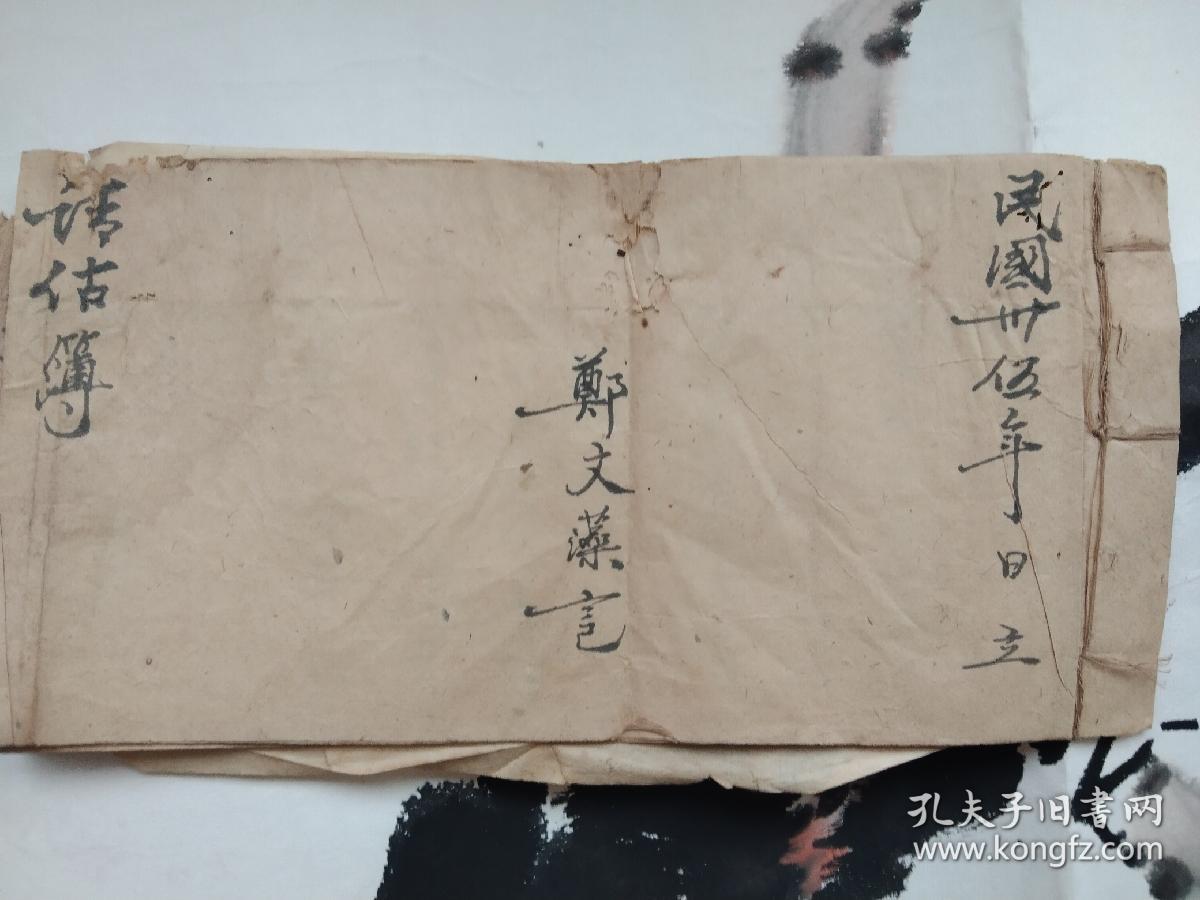 民國卅伍年 日 立
鄭文藻
請估簿
孔夫子旧書网
www.kongfz.com